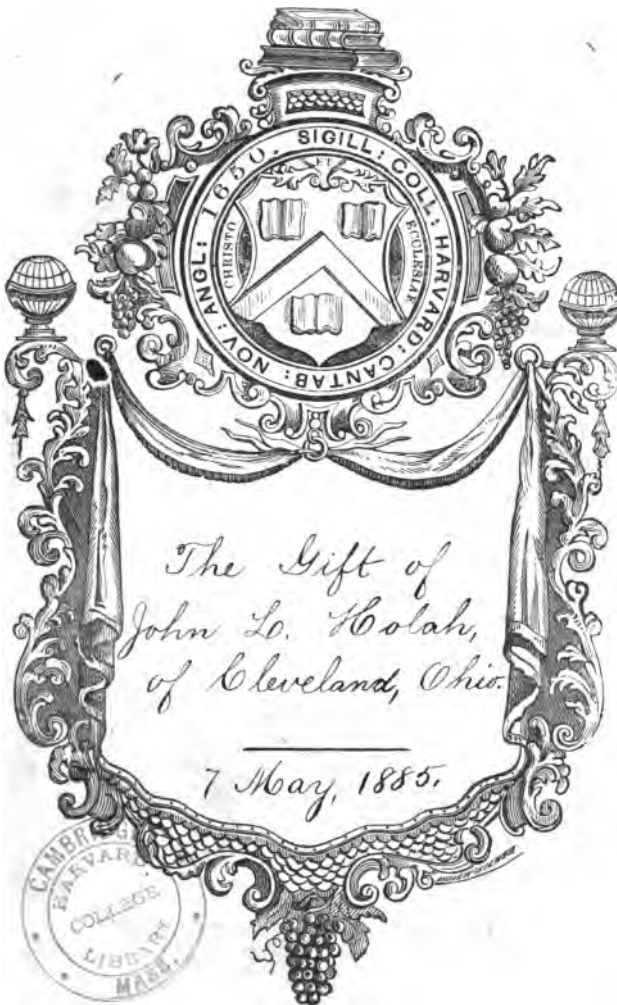 SIGILL: COLL: HARVARD: CANTAB: NOV: ANGL: 1650.
ET
CHRISTO
ECCLESIAE
The Gift of
John L. Holah,
of Cleveland, Ohio.
7 May, 1885.
CAMBRIDGE
HARVARD
COLLEGE
LIBRARY
MASS.